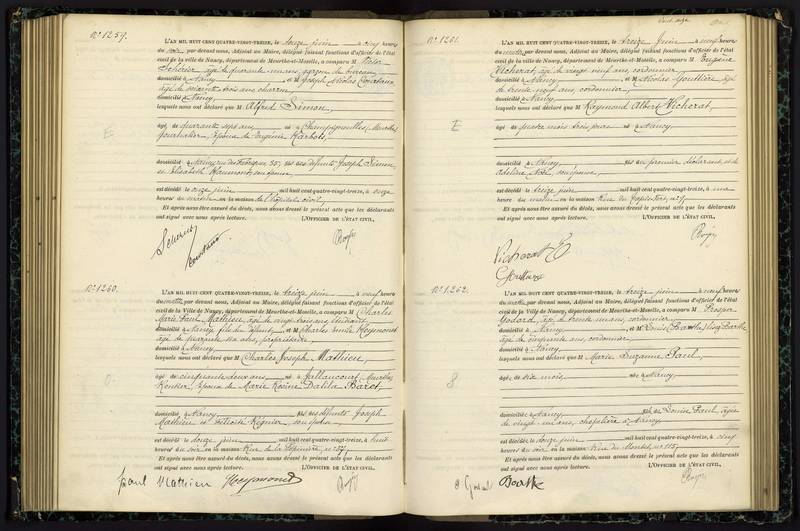 N° 1259.
L'AN MIL HUIT CENT QUATRE-VINGT-TREIZE, le douze juin à cinq heures
du soir, par devant nous, Adjoint au Maire, délégué faisant fonctions d'officier de l'état
civil de la ville de Nancy, département de Meurthe-et-Moselle, a comparu M Victor
âgé de quarante un ans, garçon de bureau,
domicilié à Nancy et M Joseph Nicolas
âgé de soixante trois ans, charron,
domicilié à Nancy,
lesquels nous ont déclaré que M Alfred Simon,
E
âgé de quarante sept ans né à Champigneulles (Meurthe)
journalier, époux de Eugénie
domicilié à Nancy, rue des Fabriques 35, fils des défunts Joseph Simon
et Elisabeth Haumont, son épouse,
est décédé le onze juin mil huit cent quatre-vingt-treize, à onze
heures du matin en la maison de l'hôpital civil,
Et après nous être assuré du décès, nous avons dressé le présent acte que les déclarants
ont signé avec nous après lecture. L'OFFICIER DE L'ÉTAT CIVIL,
N° 1260.
L'AN MIL HUIT CENT QUATRE-VINGT-TREIZE, le treize juin à neuf heures
du matin, par devant nous, Adjoint au Maire, délégué faisant fonctions d'officier de l'état
civil de la Ville de Nancy, département de Meurthe-et-Moselle, a comparu M Charles
Marie Paul Mathieu, âgé de vingt trois ans, étudiant
domicilié à Nancy, fils du défunt, et M Charles Emile Reymond
âgé de quarante six ans, propriétaire,
domicilié à Nancy,
lesquels nous ont déclaré que M Charles Joseph Mathieu,
âgé de cinquante deux ans né à Jallaucourt, (Meurthe)
Rentier, époux de Marie Rosine Dalila Baret,
domicilié à Nancy fils des défunts Joseph
Mathieu et Félicité Régnier, son épouse,
est décédé le douze juin mil huit cent quatre-vingt-treize, à huit
heures du soir en la maison Rue de la
Et après nous être assuré du décès, nous avons dressé le présent acte que les déclarants
ont signé avec nous après lecture. L'OFFICIER DE L'ÉTAT CIVIL,
Paul Mathieu Reymond
N° 1261.
L'AN MIL HUIT CENT QUATRE-VINGT-TREIZE, le treize juin à neuf heures
du matin, par devant nous, Adjoint au Maire, délégué faisant fonctions d'officier de l'état
civil de la ville de Nancy, département de Meurthe-et-Moselle, a comparu M Eugène
Vicherat, âgé de vingt neuf ans, cordonnier,
domicilié à Nancy et M Nicolas Gouttière, âgé
de trente neuf ans, cordonnier,
domicilié à Nancy,
lesquels nous ont déclaré que M Raymond Albert Vicherat,
E
âgé de quatre mois trois jours né à Nancy,
domicilié à Nancy fils du premier déclarant et de
Adeline Noël, son épouse,
est décédé le treize juin mil huit cent quatre-vingt-treize, à une
heure du matin en la maison Rue
Et après nous être assuré du décès, nous avons dressé le présent acte que les déclarants
ont signé avec nous après lecture. L'OFFICIER DE L'ÉTAT CIVIL,
Vicherat
N° 1262.
L'AN MIL HUIT CENT QUATRE-VINGT-TREIZE, le treize juin à neuf heures
du matin, par devant nous, Adjoint au Maire, délégué faisant fonctions d'officier de l'état
civil de la Ville de Nancy, département de Meurthe-et-Moselle, a comparu M Prosper
Godard, âgé de trente un ans, cordonnier,
domicilié à Nancy et M Louis
âgé de cinquante ans, cordonnier,
domicilié à Nancy,
lesquels nous ont déclaré que M Marie Suzanne Paul,
8
âgée de six mois née à Nancy,
domiciliée à Nancy fille de Louise Paul, âgée
de vingt un ans, chapelière à Nancy,
est décédée le douze juin mil huit cent quatre-vingt-treize, à cinq
heures du soir en la maison Rue du
Et après nous être assuré du décès, nous avons dressé le présent acte que les déclarants
ont signé avec nous après lecture. L'OFFICIER DE L'ÉTAT CIVIL,